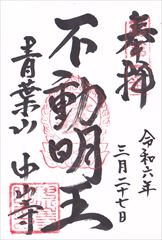 奉拝
令和六年
三月二十七日
不動明王
青葉山
中山寺